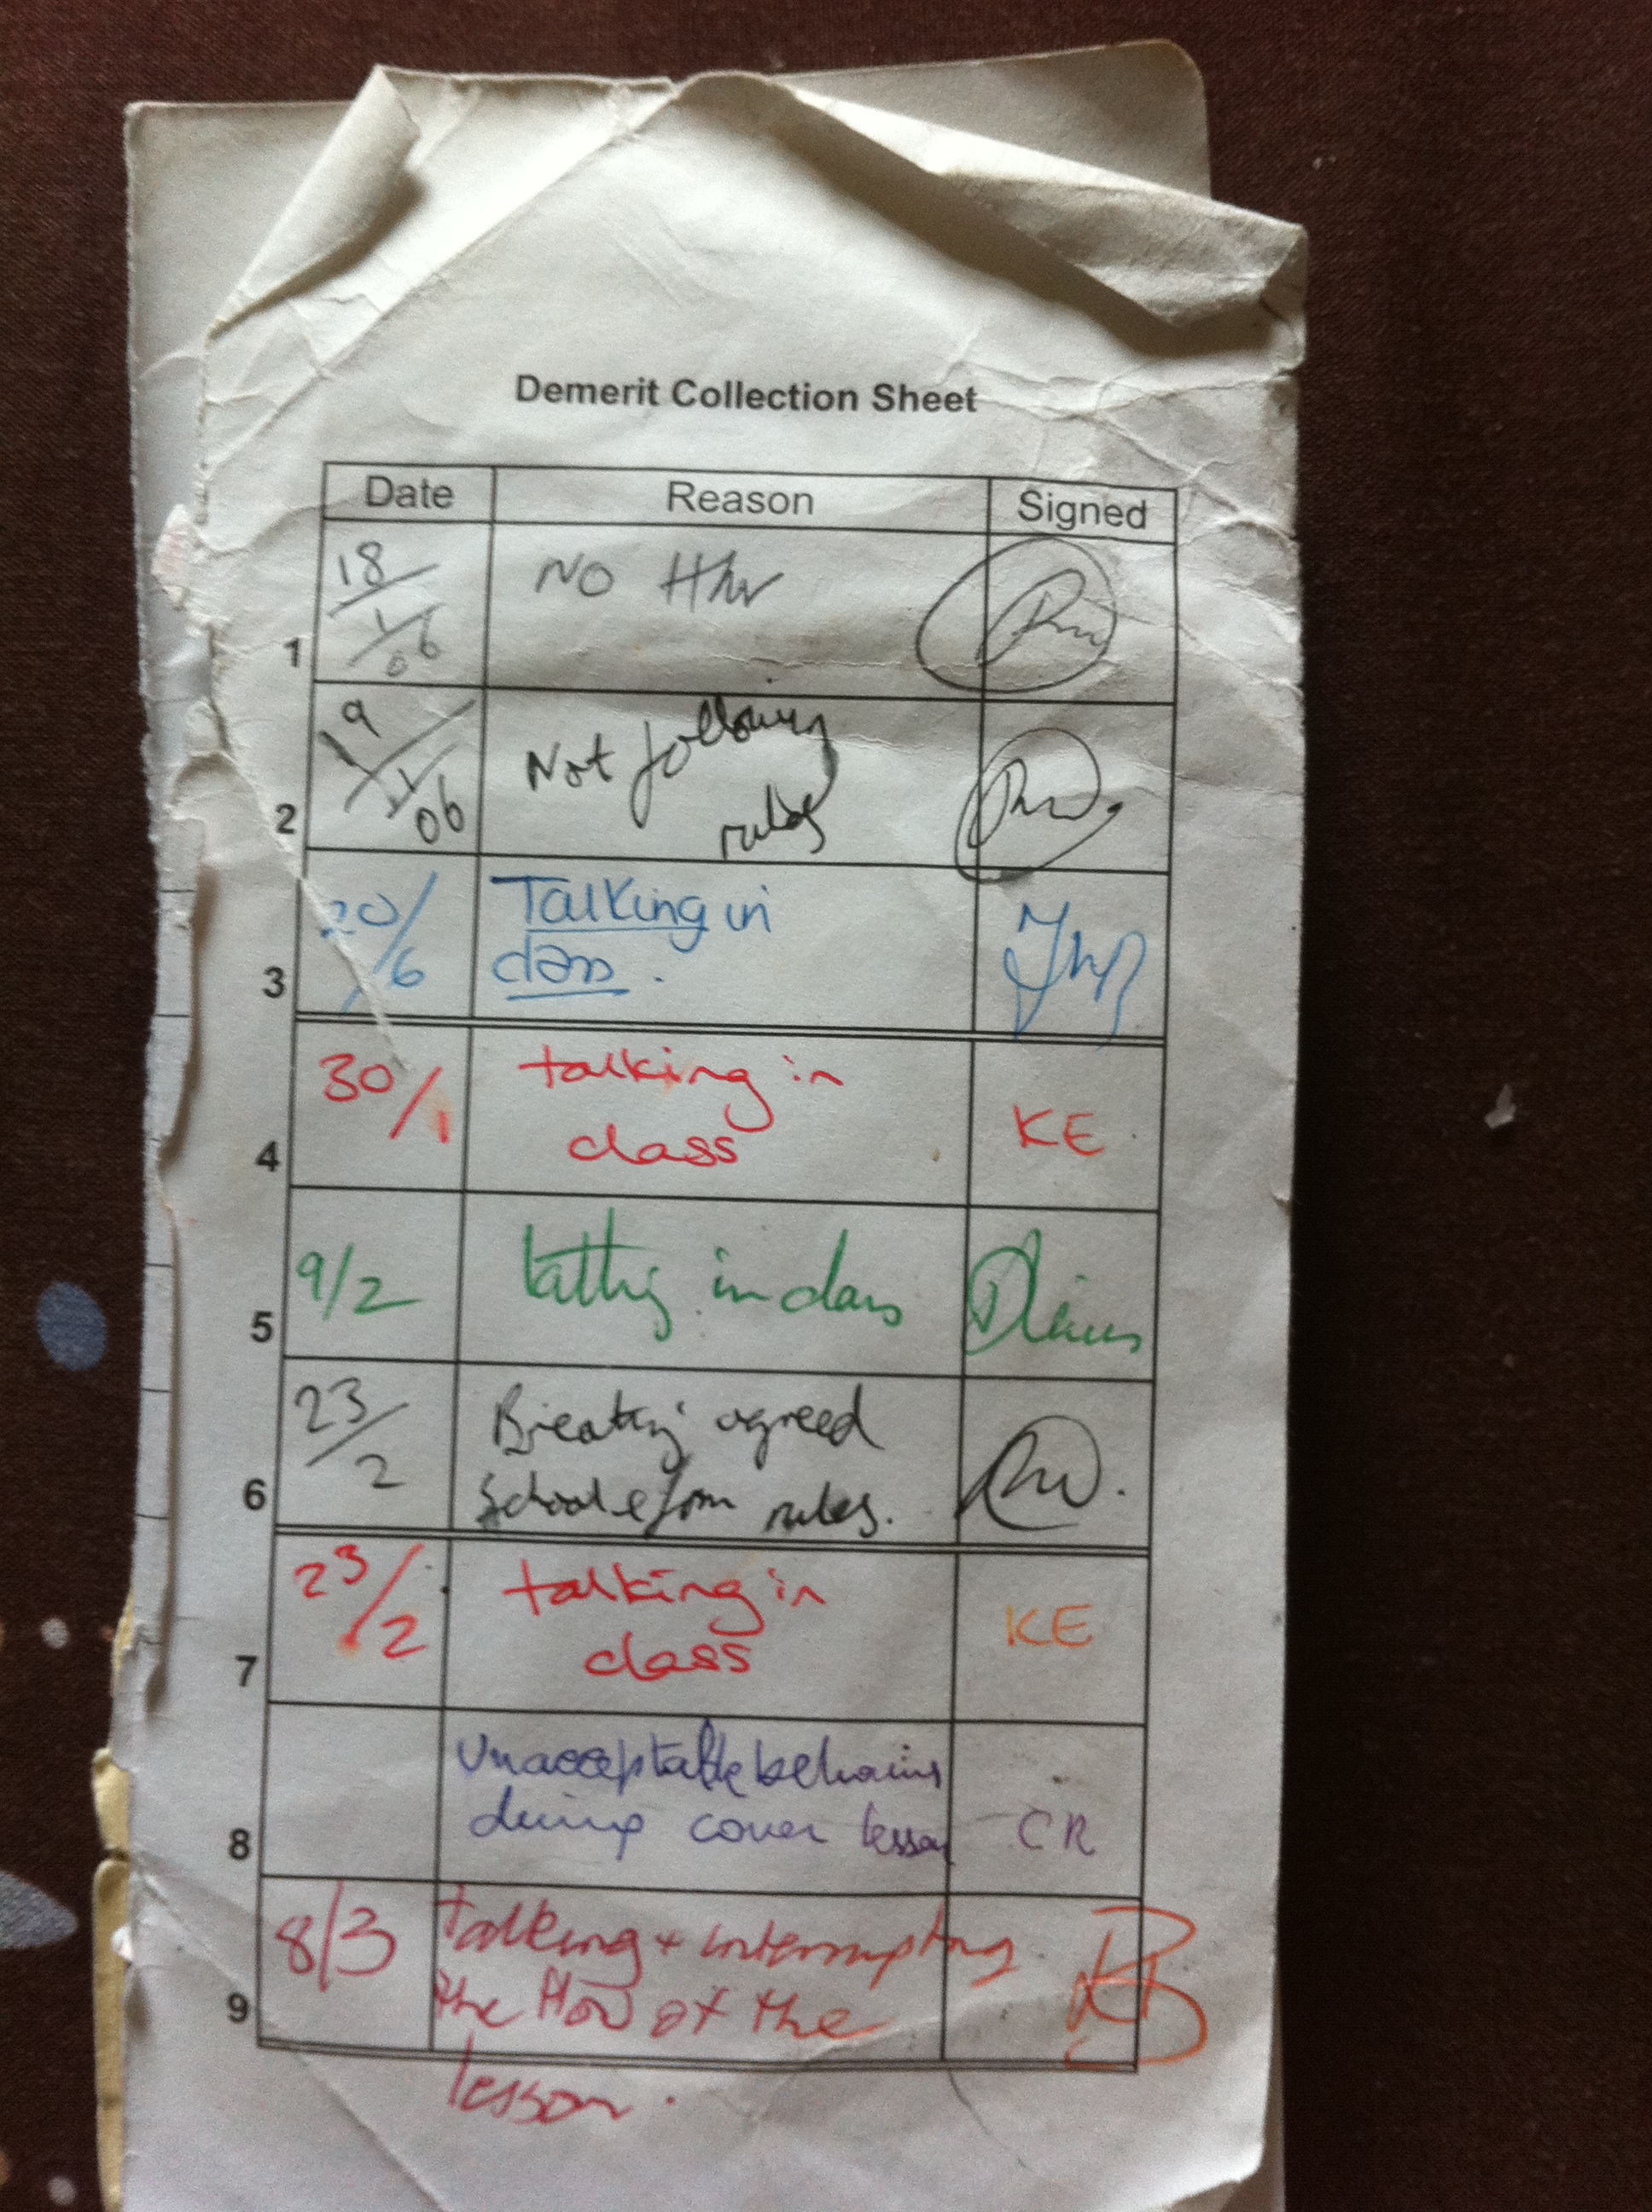 Demerit Collection Sheet
Date Reason Signed
1 18/1/06 NO H/W
2 19/1/06 Not following
rules
3 20/6 Talking in
class.
4 30/1 talking in
class KE
5 9/2 talking in class
6 23/2 Breaking agreed
School & form rules.
7 23/2 talking in
class KE
8 Unacceptable behaviour
during cover lesson CR
9 8/3 talking + interrupting
the flow of the
lesson.